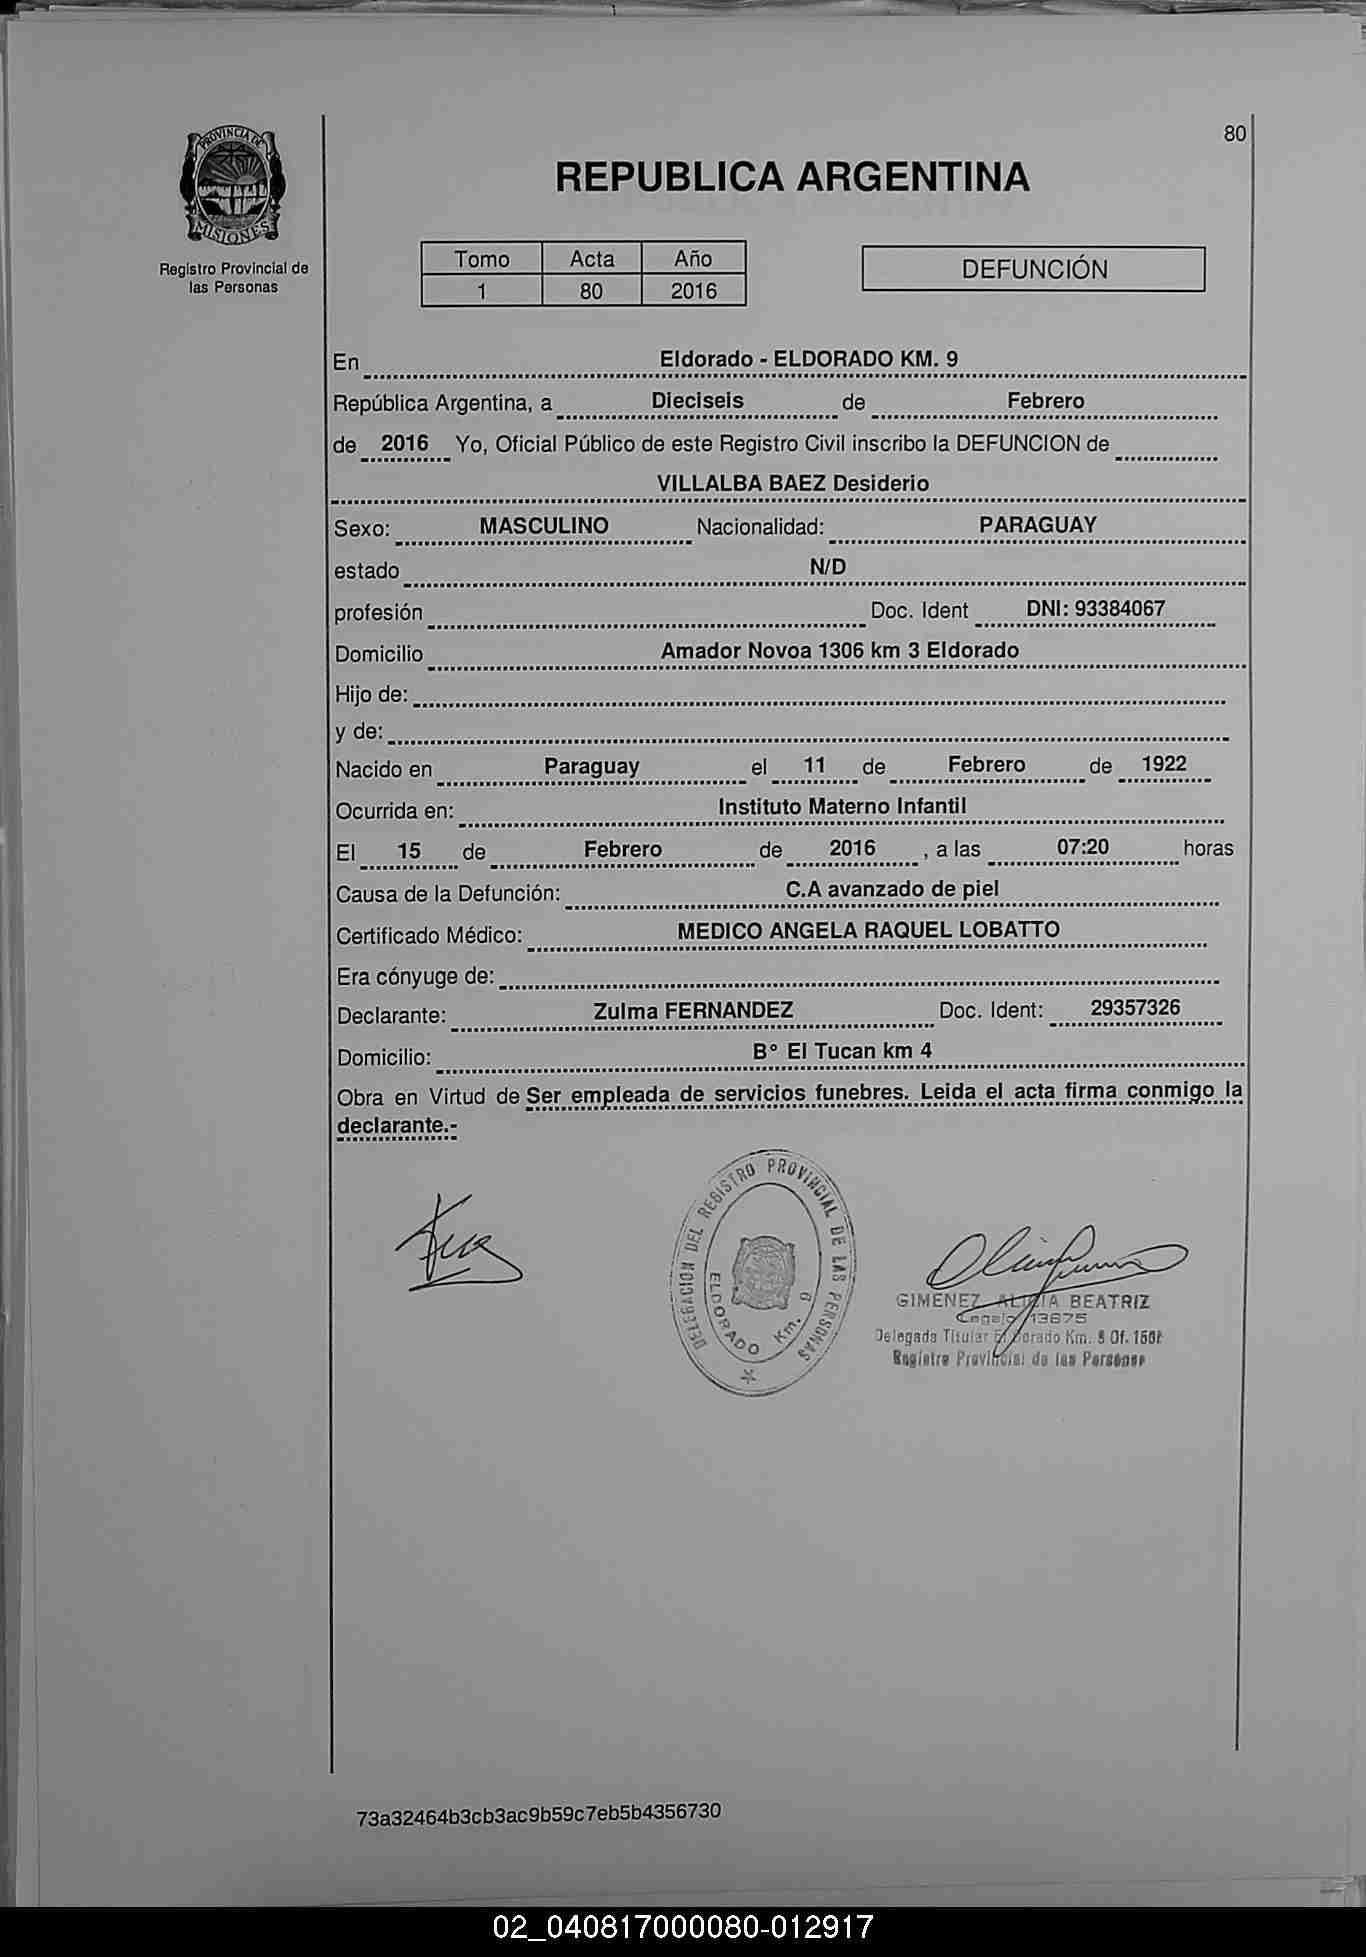 80
PROVINCIA DE
MISIONES
Registro Provincial de
las Personas
REPUBLICA ARGENTINA
Tomo Acta Año
1 80 2016
DEFUNCIÓN
En Eldorado - ELDORADO KM. 9
República Argentina, a Dieciseis de Febrero
de 2016 Yo, Oficial Público de este Registro Civil inscribo la DEFUNCION de
VILLALBA BAEZ Desiderio
Sexo: MASCULINO Nacionalidad: PARAGUAY
estado N/D
profesión Doc. Ident DNI: 93384067
Domicilio Amador Novoa 1306 km 3 Eldorado
Hijo de:
y de:
Nacido en Paraguay el 11 de Febrero de 1922
Ocurrida en: Instituto Materno Infantil
El 15 de Febrero de 2016 , a las 07:20 horas
Causa de la Defunción: C.A avanzado de piel
Certificado Médico: MEDICO ANGELA RAQUEL LOBATTO
Era cónyuge de:
Declarante: Zulma FERNANDEZ Doc. Ident: 29357326
Domicilio: B° El Tucan km 4
Obra en Virtud de Ser empleada de servicios funebres. Leida el acta firma conmigo la
declarante.-
DELEGACION DEL REGISTRO PROVINCIAL DE LAS PERSONAS
ELDORADO Km. 9
GIMENEZ ALICIA BEATRIZ
Legajo 13675
Delegada Titular El Dorado Km. 9 Of.
Registro Provincial de las Personas
73a32464b3cb3ac9b59c7eb5b4356730
02_040817000080-012917